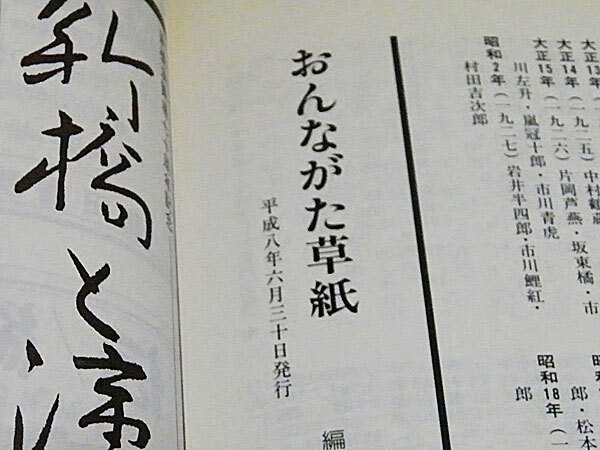 大正13年（一九二四）中村鶴蔵
大正14年（一九二五）片岡芦燕・坂東橘・市
川左升・嵐冠十郎・市川青虎
大正15年（一九二六）
昭和2年（一九二七）岩井半四郎・市川鯉紅・
村田吉次郎
昭和18年（一
郎
郎・松本
おんながた草紙
平成八年六月三十日発行
編
新橋と演